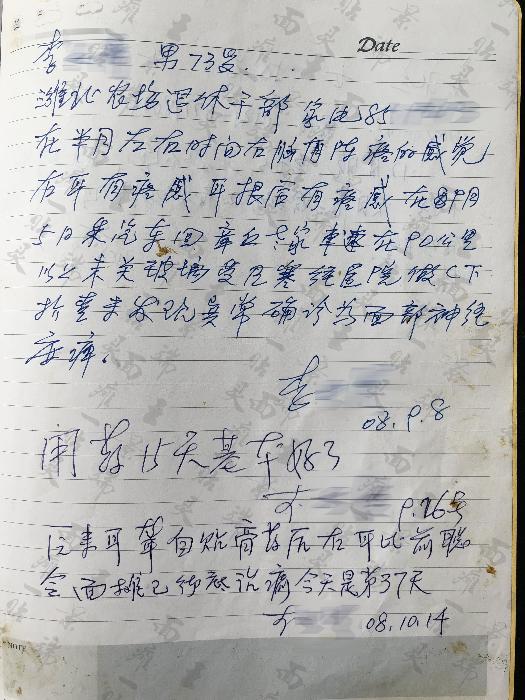 Date
李 男 73岁.....
潍北农场退休干部 家电85
在半月左右时间右脑有阵疼的感觉
右耳有疼感 耳根后有疼感 在8月
5日乘汽车回章丘老家车速在90公里
以上未关玻璃受风寒经医院做CT
检查未发现异常确诊为面部神经
麻痹.
李
08.9.8
用药15天基本好了
李
9.26号
原来耳聋自贴膏药后右耳比前聪
全面摊已彻底治痛 今天是第37天
李
08.10.14
NOTE